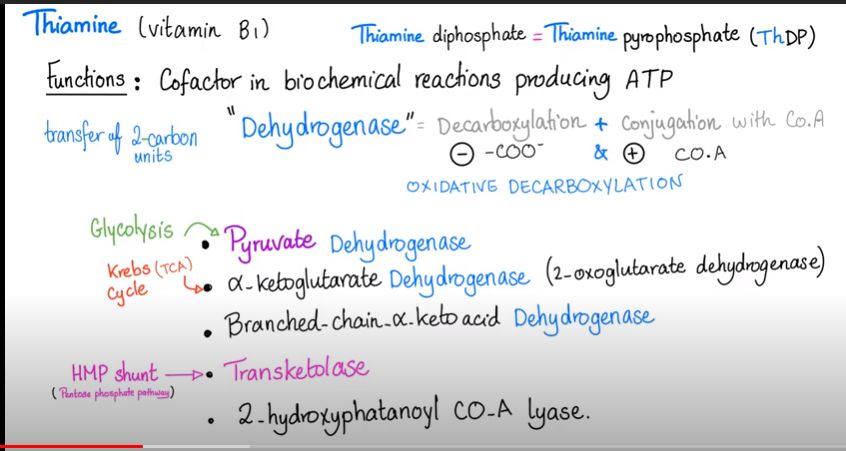 Thiamine (vitamin B1)
Thiamine diphosphate = Thiamine pyrophosphate (ThDP)
Functions : Cofactor in biochemical reactions producing ATP
transfer of 2-carbon
units
"Dehydrogenase" = Decarboxylation + Conjugation with Co.A
⊖ -COO⁻ & ⊕ CO.A
OXIDATIVE DECARBOXYLATION
Glycolysis
• Pyruvate Dehydrogenase
Krebs (TCA)
Cycle
• α-ketoglutarate Dehydrogenase (2-oxoglutarate dehydrogenase)
• Branched-chain-α-keto acid Dehydrogenase
HMP shunt → • Transketolase
(Pentose phosphate pathway)
• 2-hydroxyphatanoyl CO-A lyase.